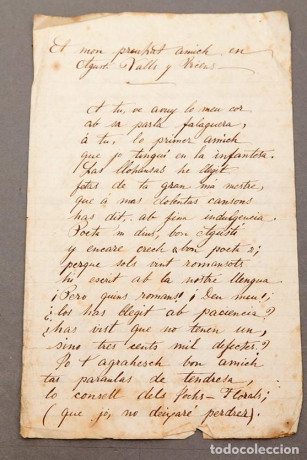 Al mon preuhat amich en
Agustí Valls y Vicens
A tu, ve avuy lo meu cor
ab sa parla falaguera,
á tu, lo primer amich
que jo tinguí en la infantesa.
Las llohansas he llegit
fetas de tu gran má mestra,
que á mas dolentas cansons
has dit, ab fina indulgencia.
Poeta m dius, bon Agustí
y encare crech «bon poeta»;
perque sols vint romansots
hi escrit ab la nostre llengua
¡Pero quins romans! ¡Deu meu!;
¿los has llegit ab paciencia?
¿has vist que no tenen un,
sino tres cents mil defectes?
Jo t'agrahesch bon amich
tas paraulas de tendresa,
lo consell dels Jochs-Florals;
(que jo, no deixaré perdrer).
todocoleccion